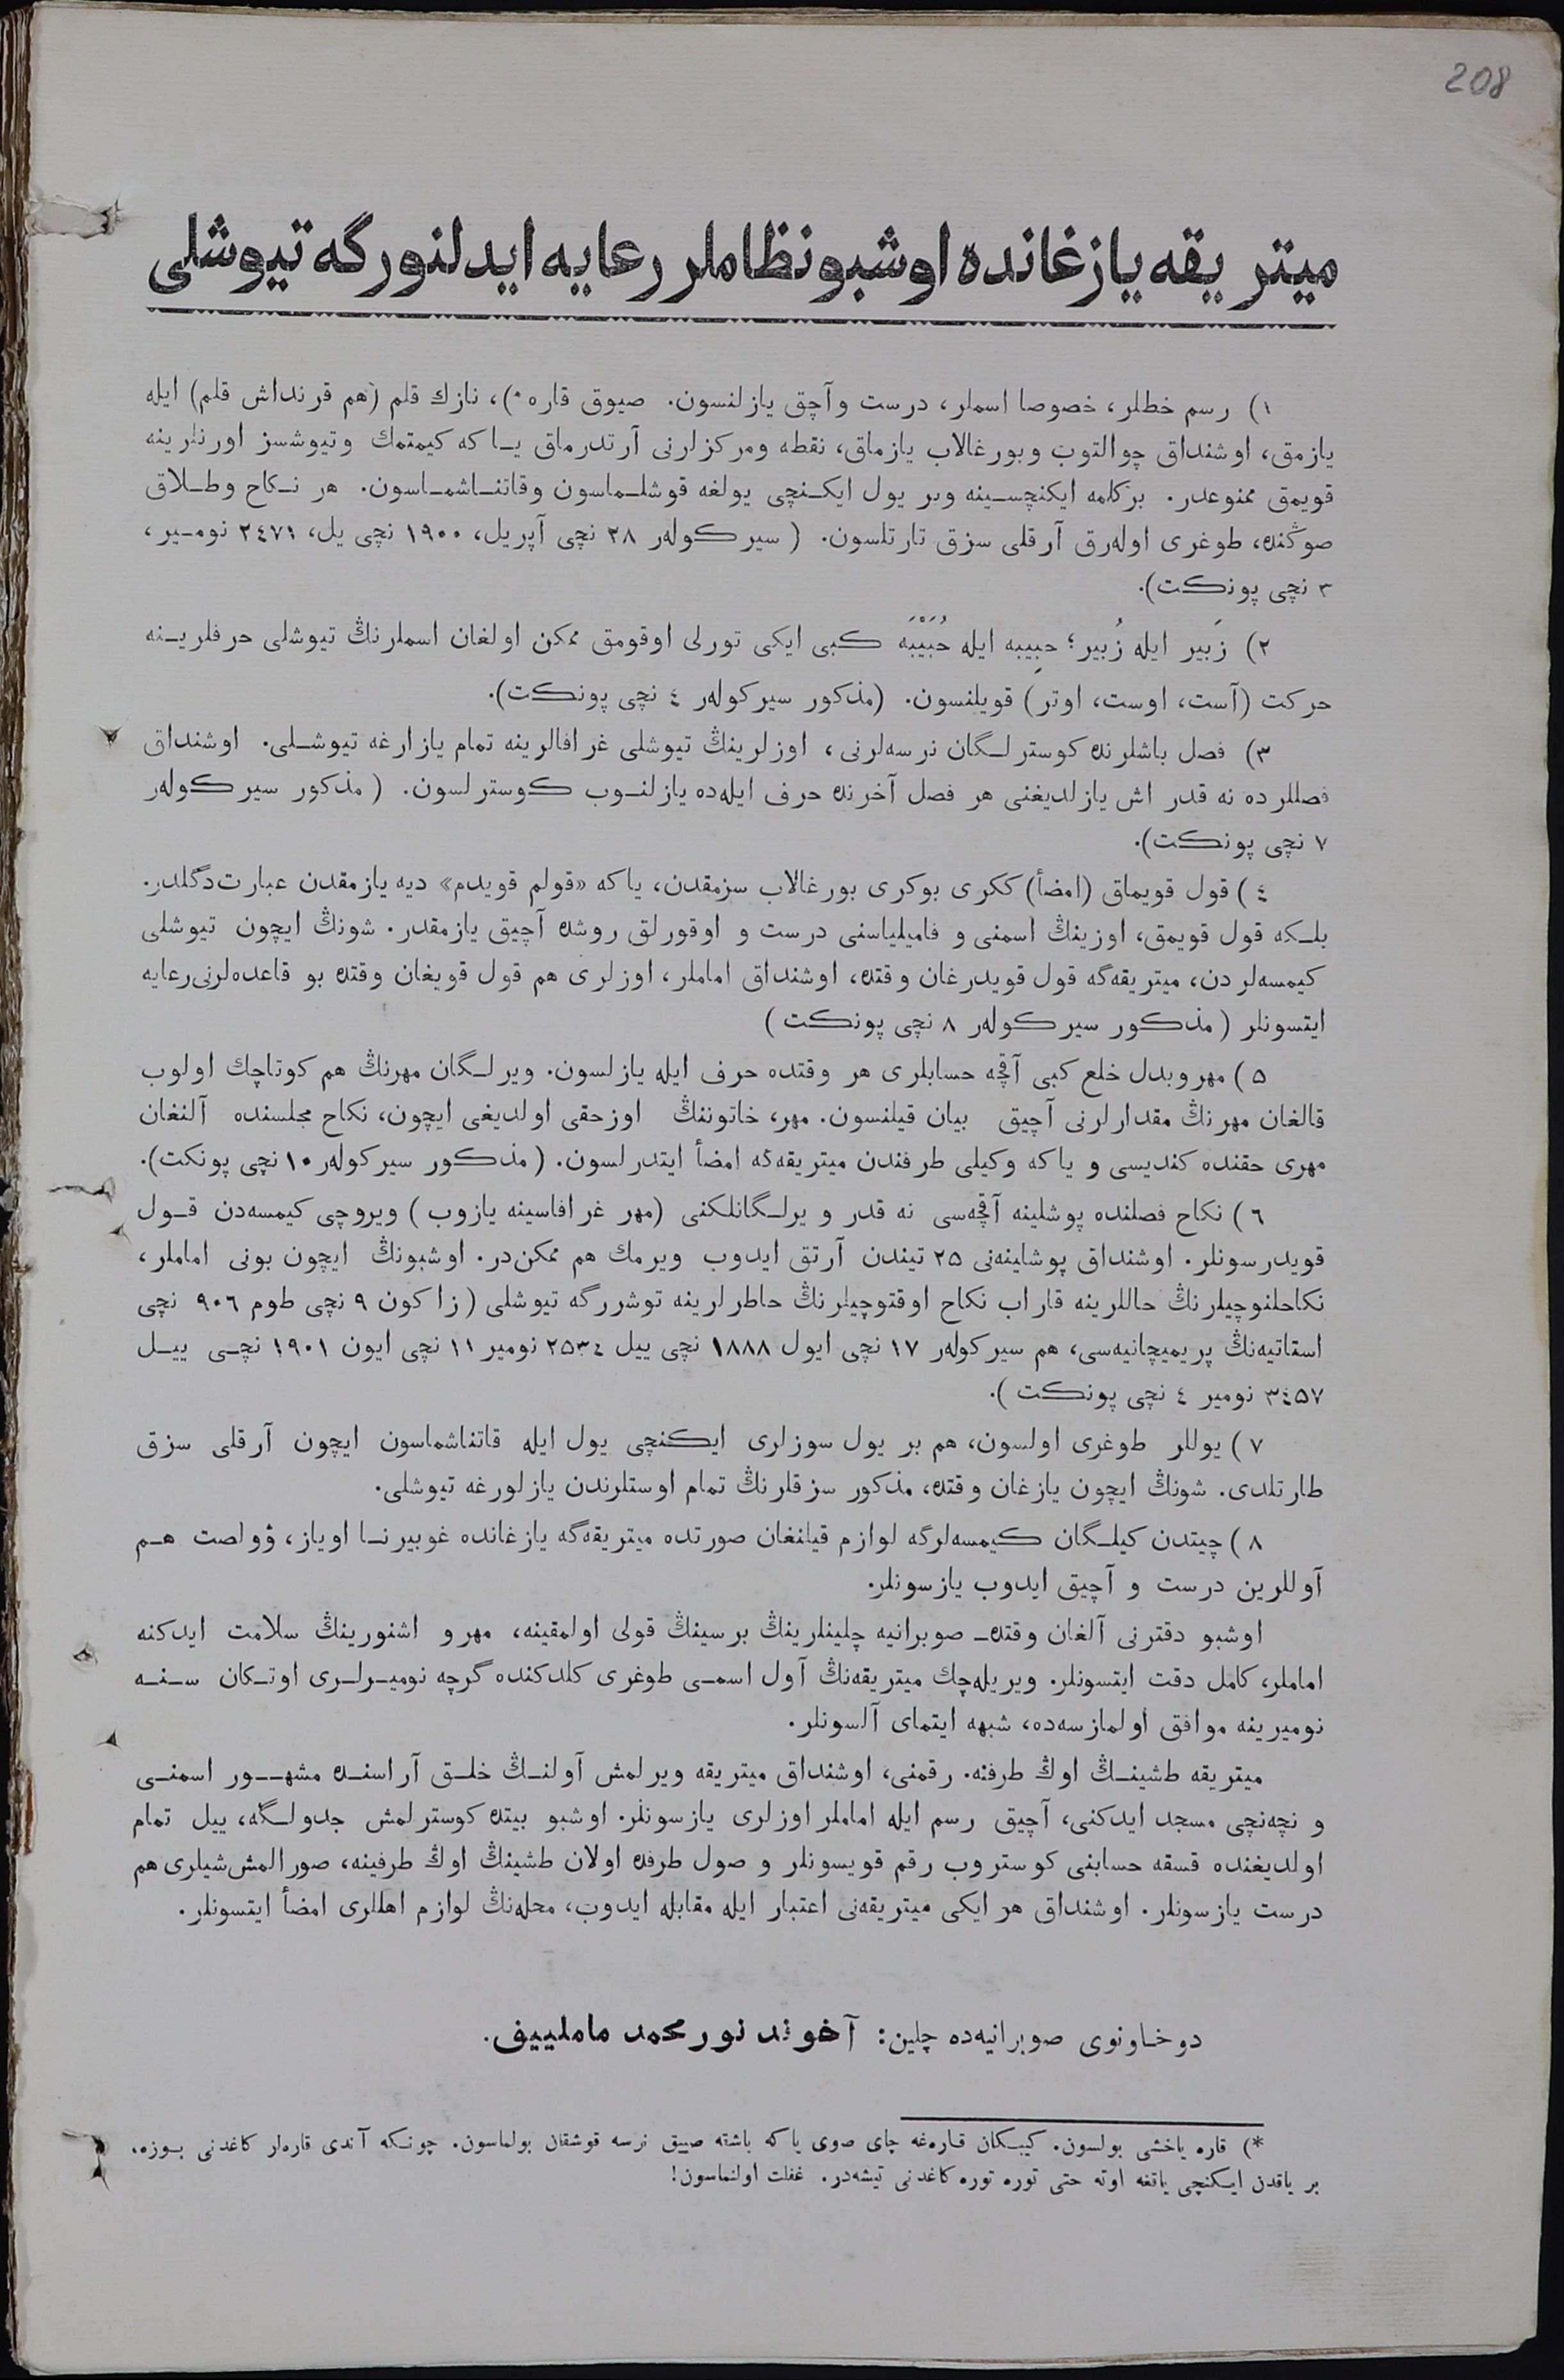 208
ميتريقه يازغانده اوشبو نظاملر رعايه ايدلنورگه تيوشلى
١) رسم خطلر، خصوصا اسملر، درست وآچق يازلنسون. صيوق قاره*)، نازك قلم (هم قرنداش قلم) ايله
يازمق، اوشنداق چوالتوب وبورغالاب يازماق، نقطه ومركزلرنى آرتدرماق يـاكه كيمتمك وتيوشسز اورنلرينه
قويمق ممنوعدر. بركلمه ايكنچسـينه وبر يول ايكـنچى يولغه قوشلـماسون وقاتنـاشمـاسون. هر نـكاح وطـلاق
صوڭنده، طوغرى اولەرق آرقلى سزق تارتلسون. (سيركولەر ٢٨ نچى آپريل، ١٩٠٠ نچى يل، ٢٤٧١ نومـير،
٣ نچى پونكت).
٢) زَبير ايله زُبير؛ حبِيبه ايله حُبَيْبَه كبى ايكى تورلى اوقومق ممكن اولغان اسملرنڭ تيوشلى حرفلريـنه
حركت (آست، اوست، اوتر) قويلنسون. (مذكور سيركولەر ٤ نچى پونكت).
٣) فصل باشلرنده كوسترلـگان نرسەلرنى، اوزلرينڭ تيوشلى غرافالرينه تمام يازارغه تيوشـلى. اوشنداق
فصللرده نه قدر اش يازلديغنى هر فصل آخرنده حرف ايله‌ده يازلنـوب كوسترلسون. (مذكور سيركولەر
٧ نچى پونكت).
٤) قول قويماق (امضأ) ككرى بوكرى بورغالاب سزمقدن، ياكه «قولم قويدم» ديه يازمقدن عبارت دگلدر.
بلـكه قول قويمق، اوزينڭ اسمنى و فاميلياسنى درست و اوقورلق روشده آچيق يازمقدر. شونڭ ايچون تيوشلى
كيمسەلردن، ميتريقەگه قول قويدرغان وقتده، اوشنداق اماملر، اوزلرى هم قول قويغان وقتده بو قاعدەلرنى رعايه
ايتسونلر (مذكور سيركولەر ٨ نچى پونكت)
٥) مهر وبدل خلع كبى آقچه حسابلرى هر وقتده حرف ايله يازلسون. ويرلـگان مهرنڭ هم كوتاچك اولوب
قالغان مهرنڭ مقدارلرنى آچيق بيان قيلنسون. مهر، خاتوننڭ اوزحقى اولديغى ايچون، نكاح مجلسنده آلنغان
مهرى حقنده كنديسى و ياكه وكيلى طرفندن ميتريقەگه امضأ ايتدرلسون. (مذكور سيركولەر ١٠ نچى پونكت).
٦) نكاح فصلنده پوشلينه آقچەسى نه قدر ويرلـگانلكنى (مهر غرافاسينه يازوب) ويروچى كيمسەدن قـول
قويدرسونلر. اوشنداق پوشلينەنى ٢٥ تيندن آرتق ايدوب ويرمك هم ممكن‌در. اوشبونڭ ايچون بونى اماملر،
نكاحلنوچيلرنڭ حاللرينه قاراب نكاح اوقتوچيلرنڭ خاطرلرينه توشررگه تيوشلى (زاكون ٩ نچى طوم ٩٠٦ نچى
استاتيەنڭ پريميچانيەسى، هم سيركولەر ١٧ نچى ايول ١٨٨٨ نچى ييل ٢٥٣٤ نومير ١١ نچى ايون ١٩٠١ نچـى ييـل
٣٤٥٧ نومير ٤ نچى پونكت).
٧) يوللر طوغرى اولسون، هم بر يول سوزلرى ايكنچى يول ايله قاتناشماسون ايچون آرقلى سزق
طارتلدى. شونڭ ايچون يازغان وقتده، مذكور سزقلرنڭ تمام اوستلرندن يازلورغه تيوشلى.
٨) چيتدن كيلـگان كيمسەلرگه لوازم قيلنغان صورتده ميتريقەگه يازغانده غوبيرنـا اوياز، ۋولصت هـم
آوللرين درست و آچيق ايدوب يازسونلر.
اوشبو دفترنى آلغان وقتده صوبرانيه چلينلرينڭ برسينڭ قولى اولمقينه، مهر و اشنورينڭ سلامت ايدكنه
اماملر، كامل دقت ايتسونلر. ويريلەچك ميتريقەنڭ آول اسمـى طوغرى كلدكنده گرچه نوميـرلـرى اوتـكان سـنـه
نوميرينه موافق اولمازسەده، شبهه ايتماى آلسونلر.
ميتريقه طشينـڭ اوڭ طرفنه. رقمنى، اوشنداق ميتريقه ويرلمش آولنـڭ خلـق آراسنـده مشهــور اسمنـى
و نچەنچى مسجد ايدكنى، آچيق رسم ايله اماملر اوزلرى يازسونلر. اوشبو بيتده كوسترلمش جدولـگه، ييل تمام
اولديغنده قسقه حسابنى كوستروب رقم قويسونلر و صول طرفده اولان طشينڭ اوڭ طرفينه، صورالمش شيلرى هم
درست يازسونلر. اوشنداق هر ايكى ميتريقەنى اعتبار ايله مقابله ايدوب، محلەنڭ لوازم اهللرى امضأ ايتسونلر.
دوخاونوى صوبرانيەده چلين: آخوند نور محمد ماملييف.
*) قاره ياخشى بولسون. كيبـكان قارەغه چاى صوى ياكه باشقه صييق نرسه قوشقان بولماسون. چونـكه آندى قارەلر كاغدنى بـوزه،
بر ياقدن ايكنچى ياقغه اوته حتى توره توره كاغدنى تيشەدر. غفلت اولنماسون!